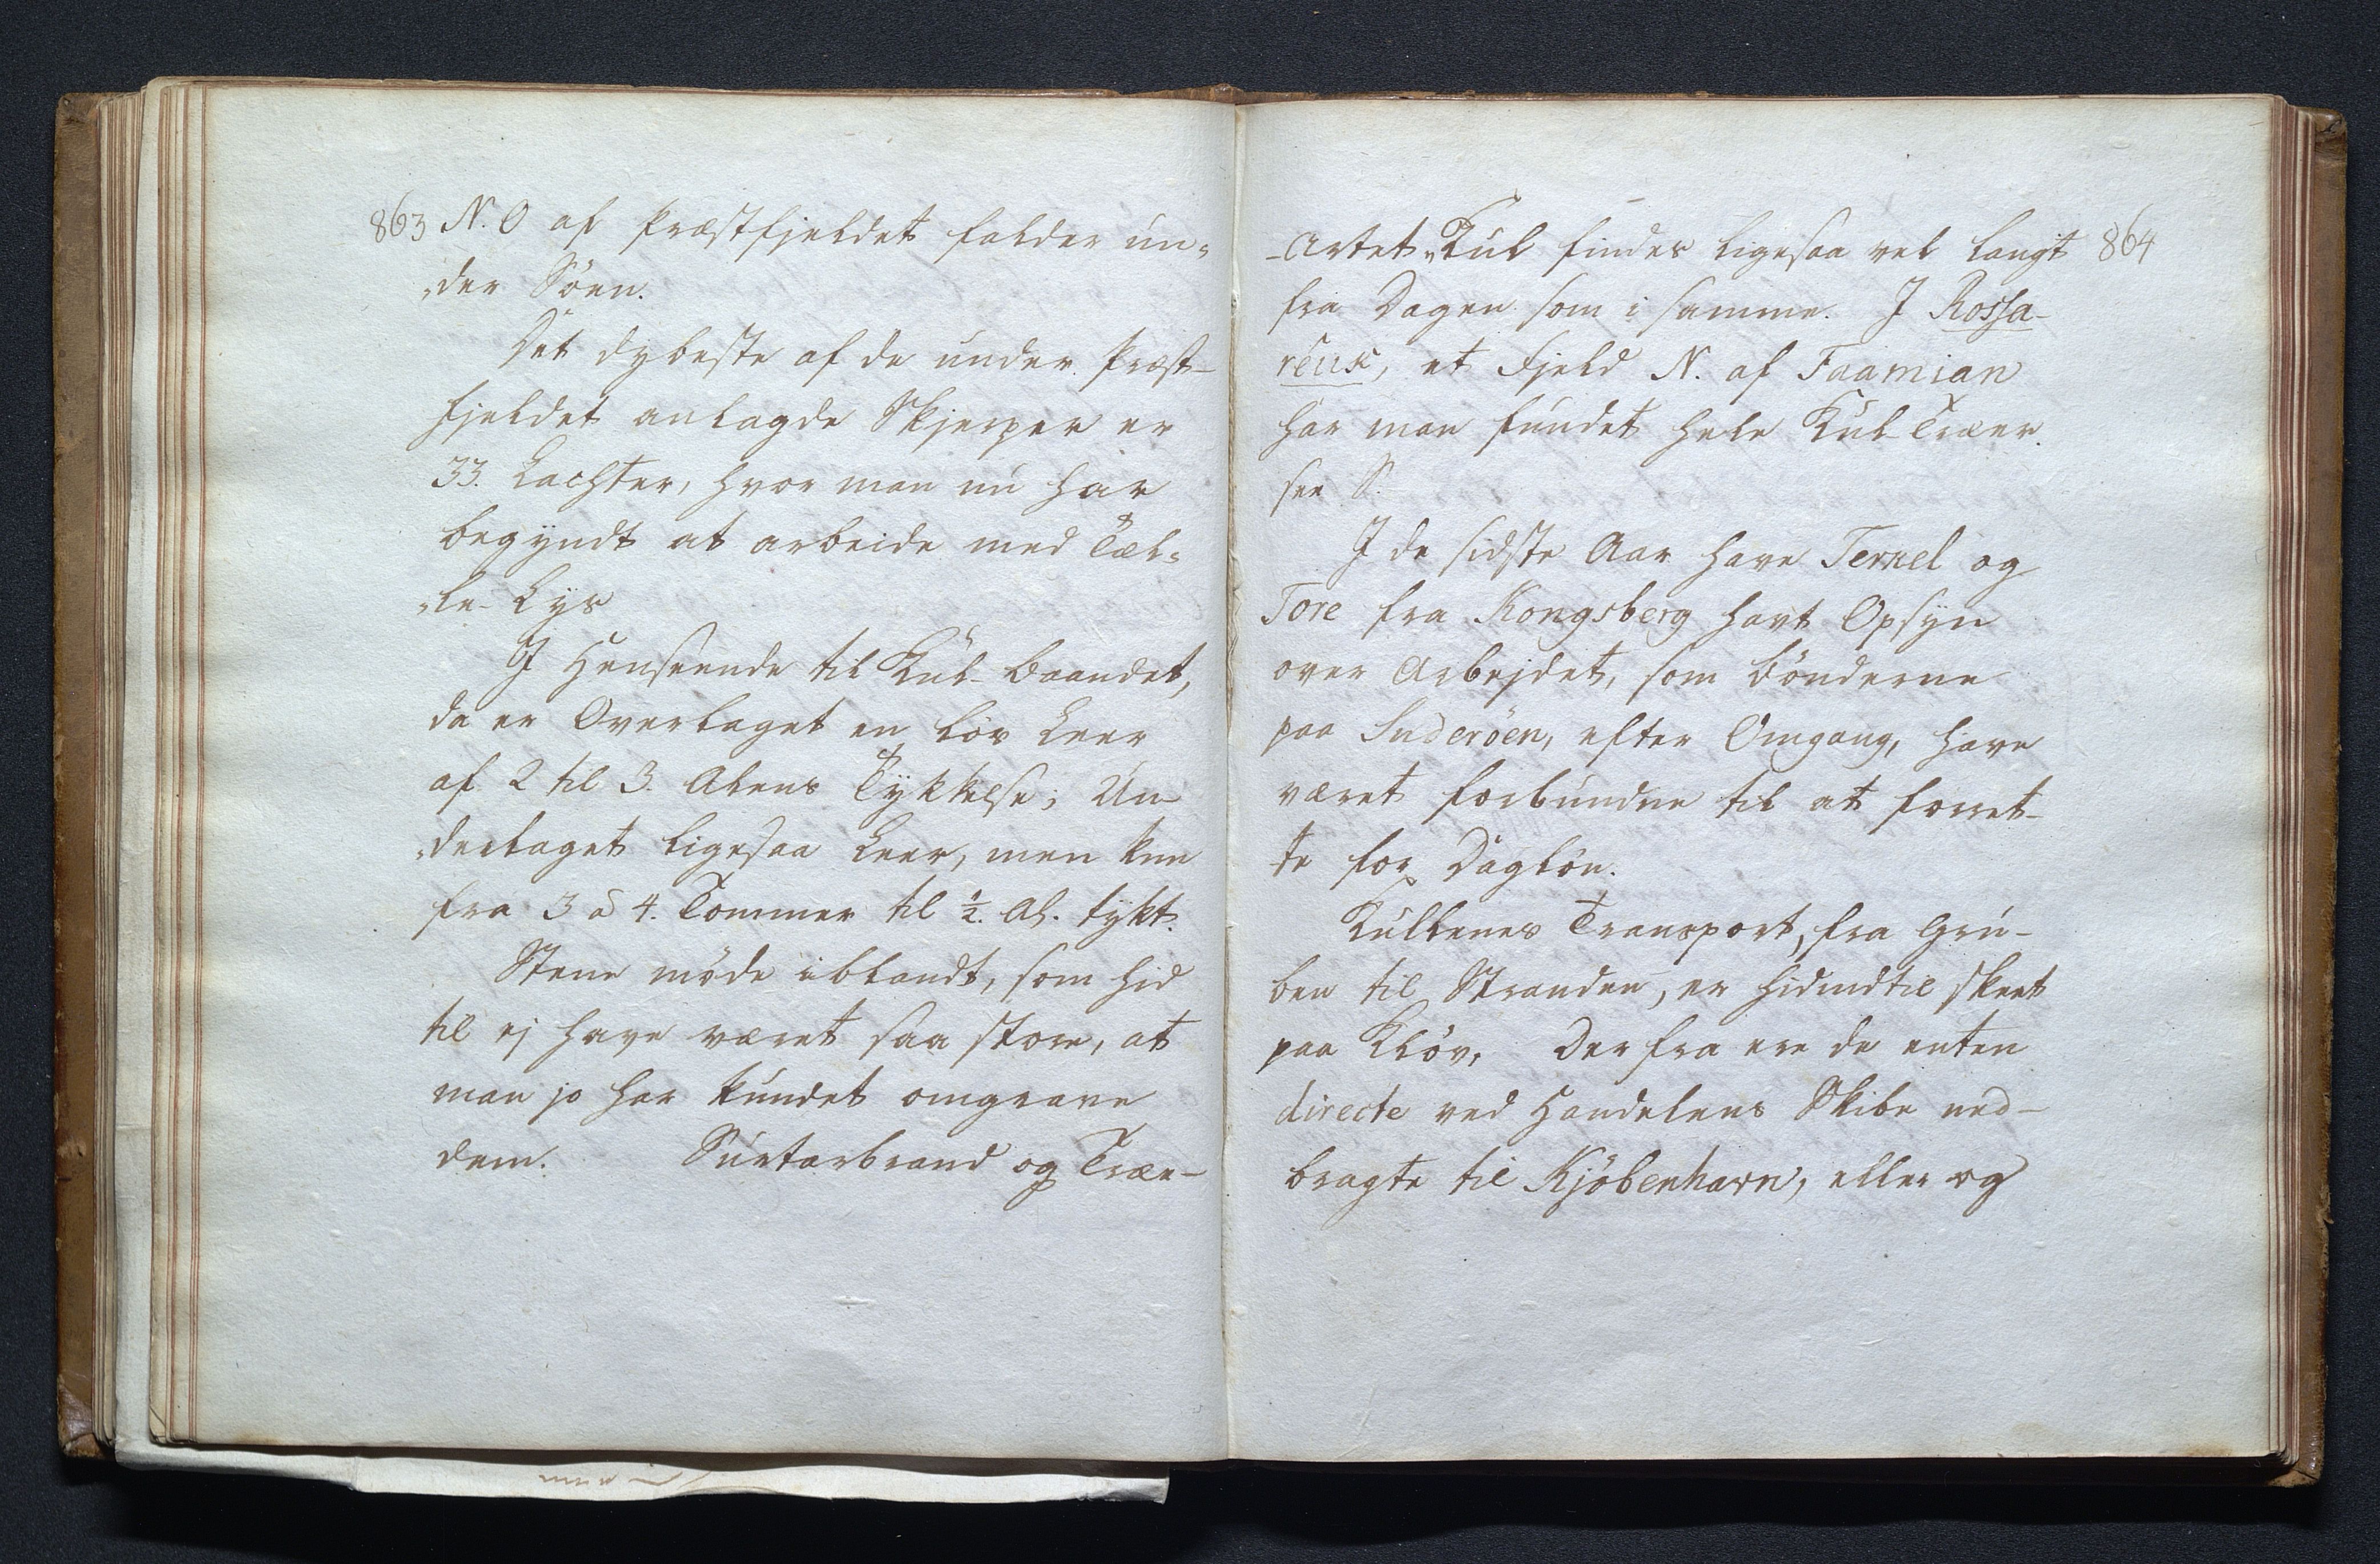 863 N. O af Præstfjeldet falder un„
„der Söen.
Det dybeste af de under Præst-
fjeldet anlagde Skjerper er
33. Lachter, hvor man nu har
begyndt at arbeide med Tæl„
„le-Lys
I Henseende til Kul-baandet,
da er Overlaget en lös Leer
af 2 til 3. Alens Tykkelse; Un-
„derlaget ligesaa Leer, men kun
fra 3 a 4. Tommer til ½. Al. tykt.
Stene möde iblandt, som hid
til ej have været saa store, at
man jo har kundet omgrave
dem. Surtarbrand og Træe-
-artet „Kul findes ligesaa vel langt 864
fra Dagen som i samme. I Rossa-
reux, et Fjeld N. af Faamian
har man fundet hele Kul-Træer.
see S.
I de sidste Aar have Terkel og
Tore fra Kongsberg havt Opsyn
over Arbejdet, som Bönderne
paa Suderöen, efter Omgang, have
været forbundne til at forret-
te for Daglön.
Kullenes Transport, fra Gru-
ben til Stranden, er hidindtil skeet
paa Klöv. Derfra ere de enten
directe ved Handelens Skibe ned-
bragte til Kjöbenhavn, eller og